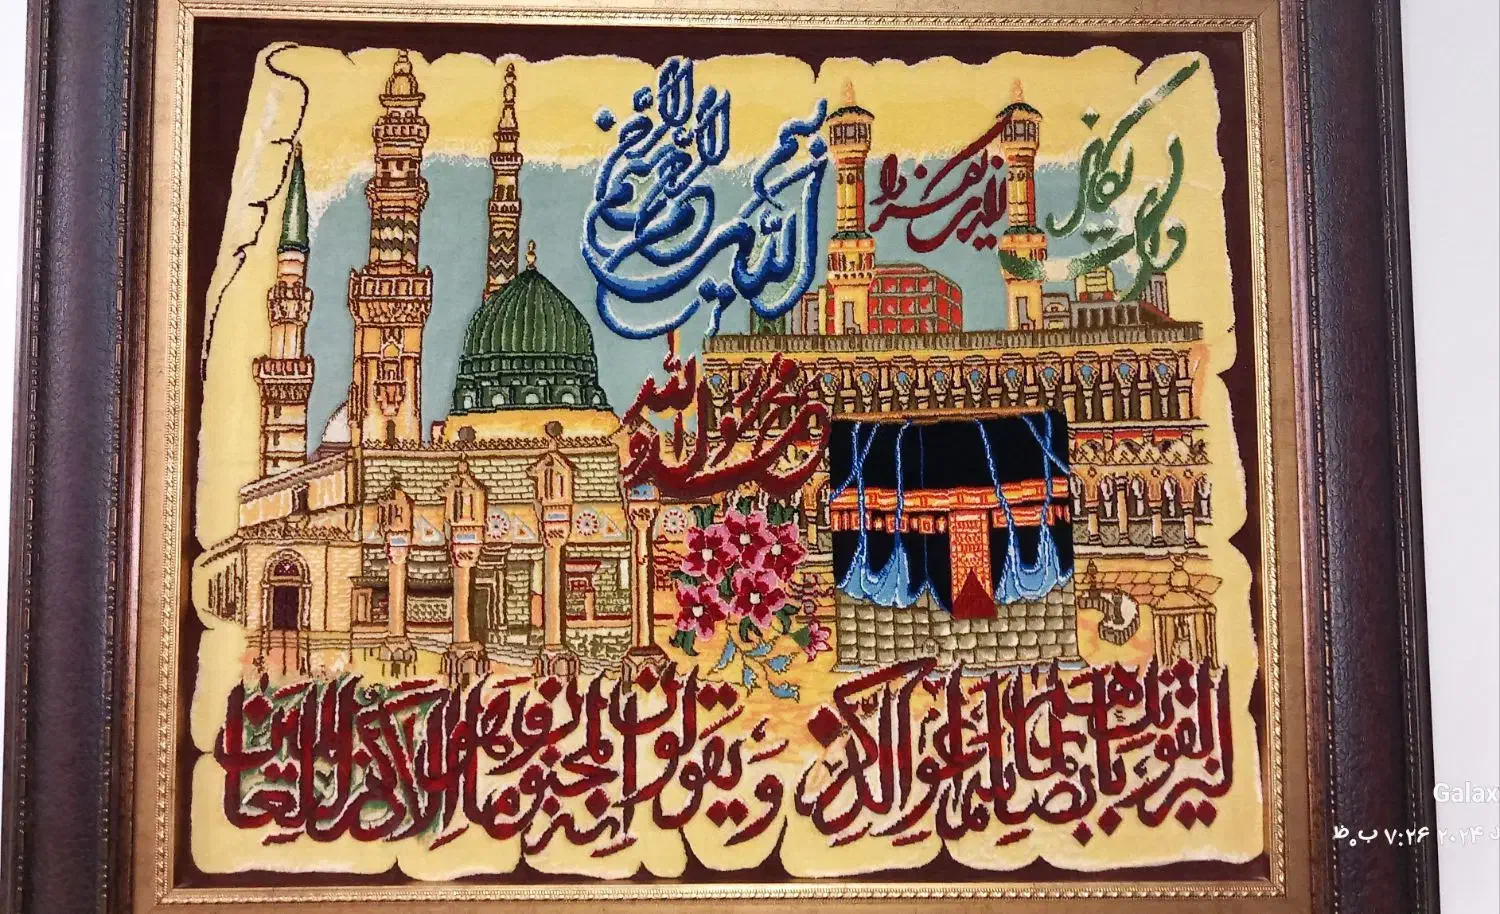 بسم الله الرحمن الرحیم
وان یکاد
الذین کفروا
محمد رسول الله
لیزلقونک بابصارهم لما سمعوا الذکر و یقولون انه لمجنون و ما هو الا ذکر للعالمین
Galax
۲۰۲۴ ۷:۲۶ ب.ظ